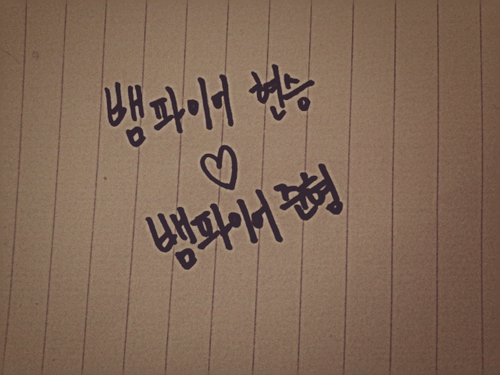 뱀파이어 현승
♡
뱀파이어 준형